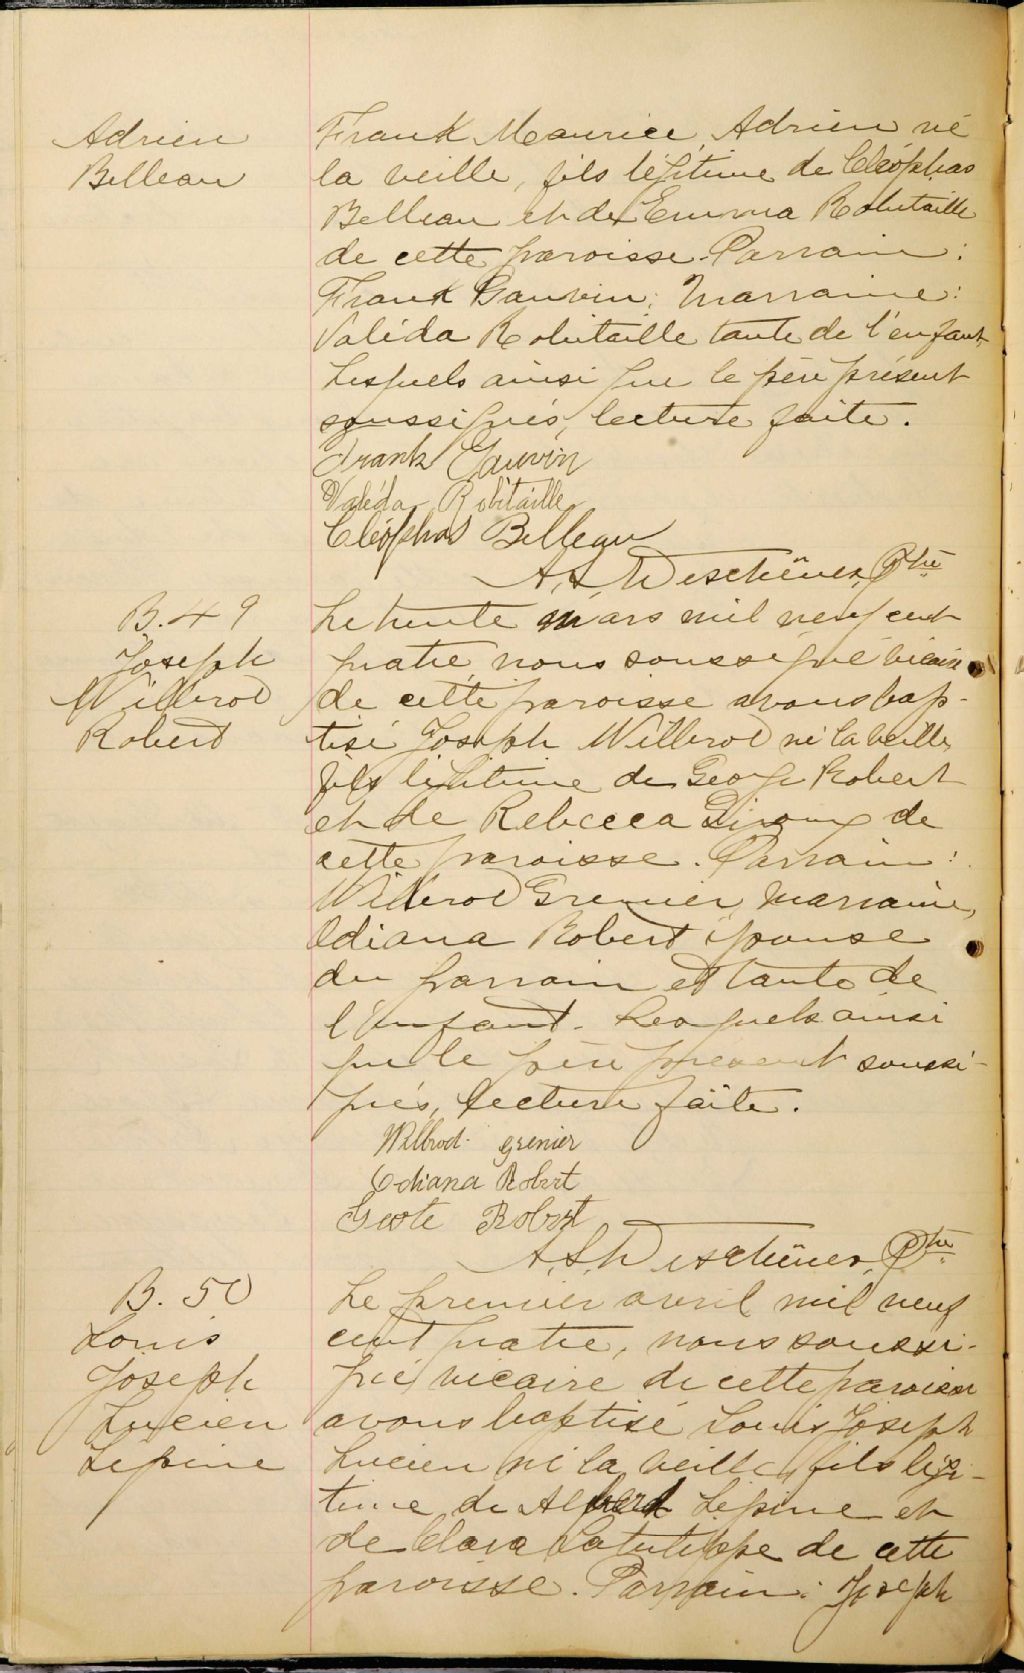 Adrien
Belleau
Frank Maurice Adrien né
la veille, fils légitime de Cléophas
Belleau et de Emma Robitaille
de cette paroisse. Parrain :
Frank Gauvin; Marraine :
Valéda Robitaille tante de l'enfant
Lesquels ainsi que le père présent
soussignés, lecture faite.
Frank Gauvin
Valéda Robitaille
Cléophas Belleau
A. S. Deschênes, Ptre
B. 49
Joseph
Willerod
Robert
Le trente mars mil neuf cent
quatre nous soussigné vicaire
de cette paroisse avons bap-
tisé Joseph Willerod né la veille
fils légitime de George Robert
et de Rebecca Giroux de
cette paroisse. Parrain :
Willerod Grenier, Marraine,
Odiana Robert épouse
du parrain et tante de
l'enfant. Lesquels ainsi
que le père présent soussi-
gnés, lecture faite.
Wilbrod grenier
Odiana Robert
Robert
A. S. Deschênes, Ptre
B. 50
Louis
Joseph
Lucien
Lepine
Le premier avril mil neuf
cent quatre, nous soussi-
gné vicaire de cette paroisse
avons baptisé Louis Joseph
Lucien né la veille, fils légi-
time de Albert Lepine et
de Clara de cette
paroisse. Parrain : Joseph